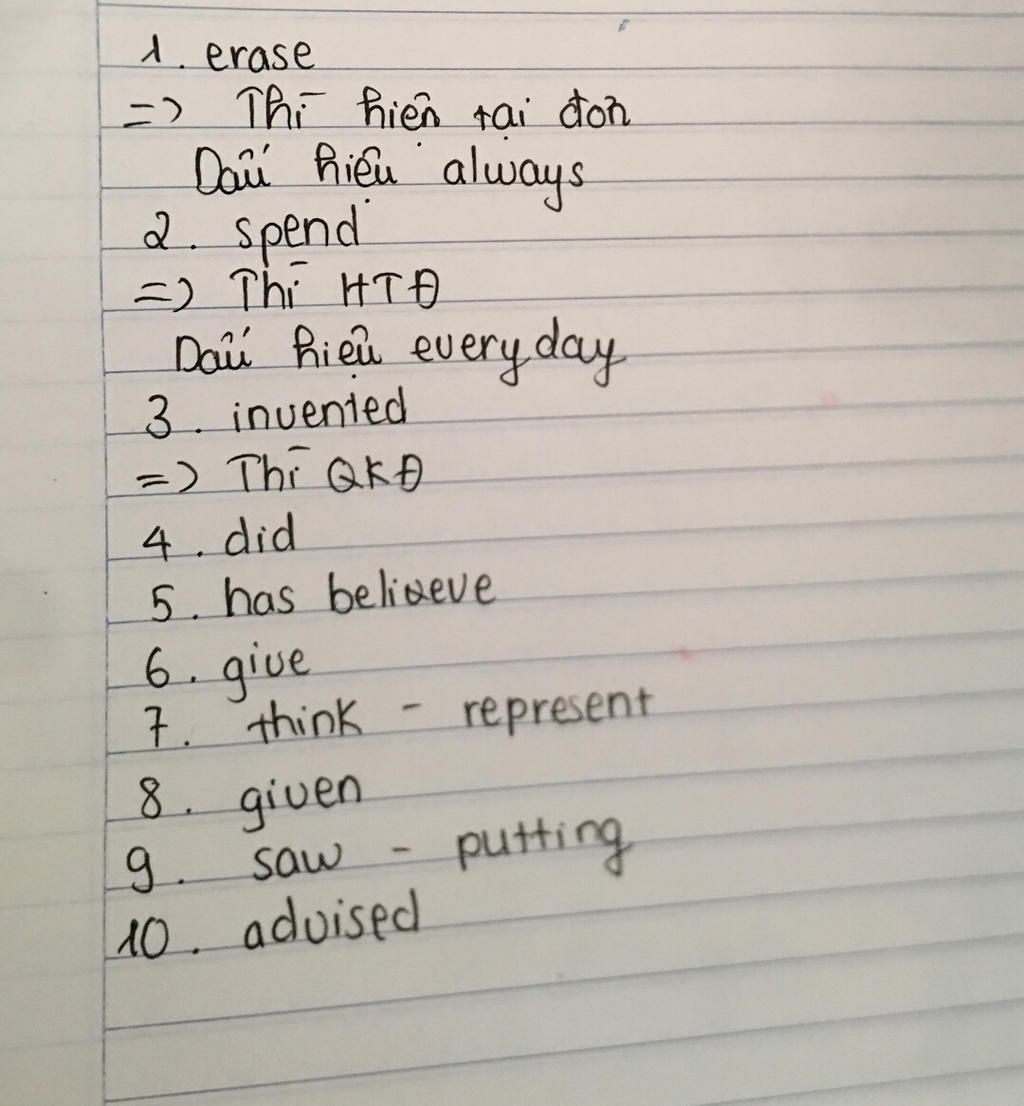 1. erase
=> Thì hiện tại đơn
Dấu hiệu always
2. spend
=> Thì HTĐ
Dấu hiệu everyday
3. invented
=> Thì QKĐ
4. did
5. has believe
6. give
7. think - represent
8. given
9. saw - putting
10. advised